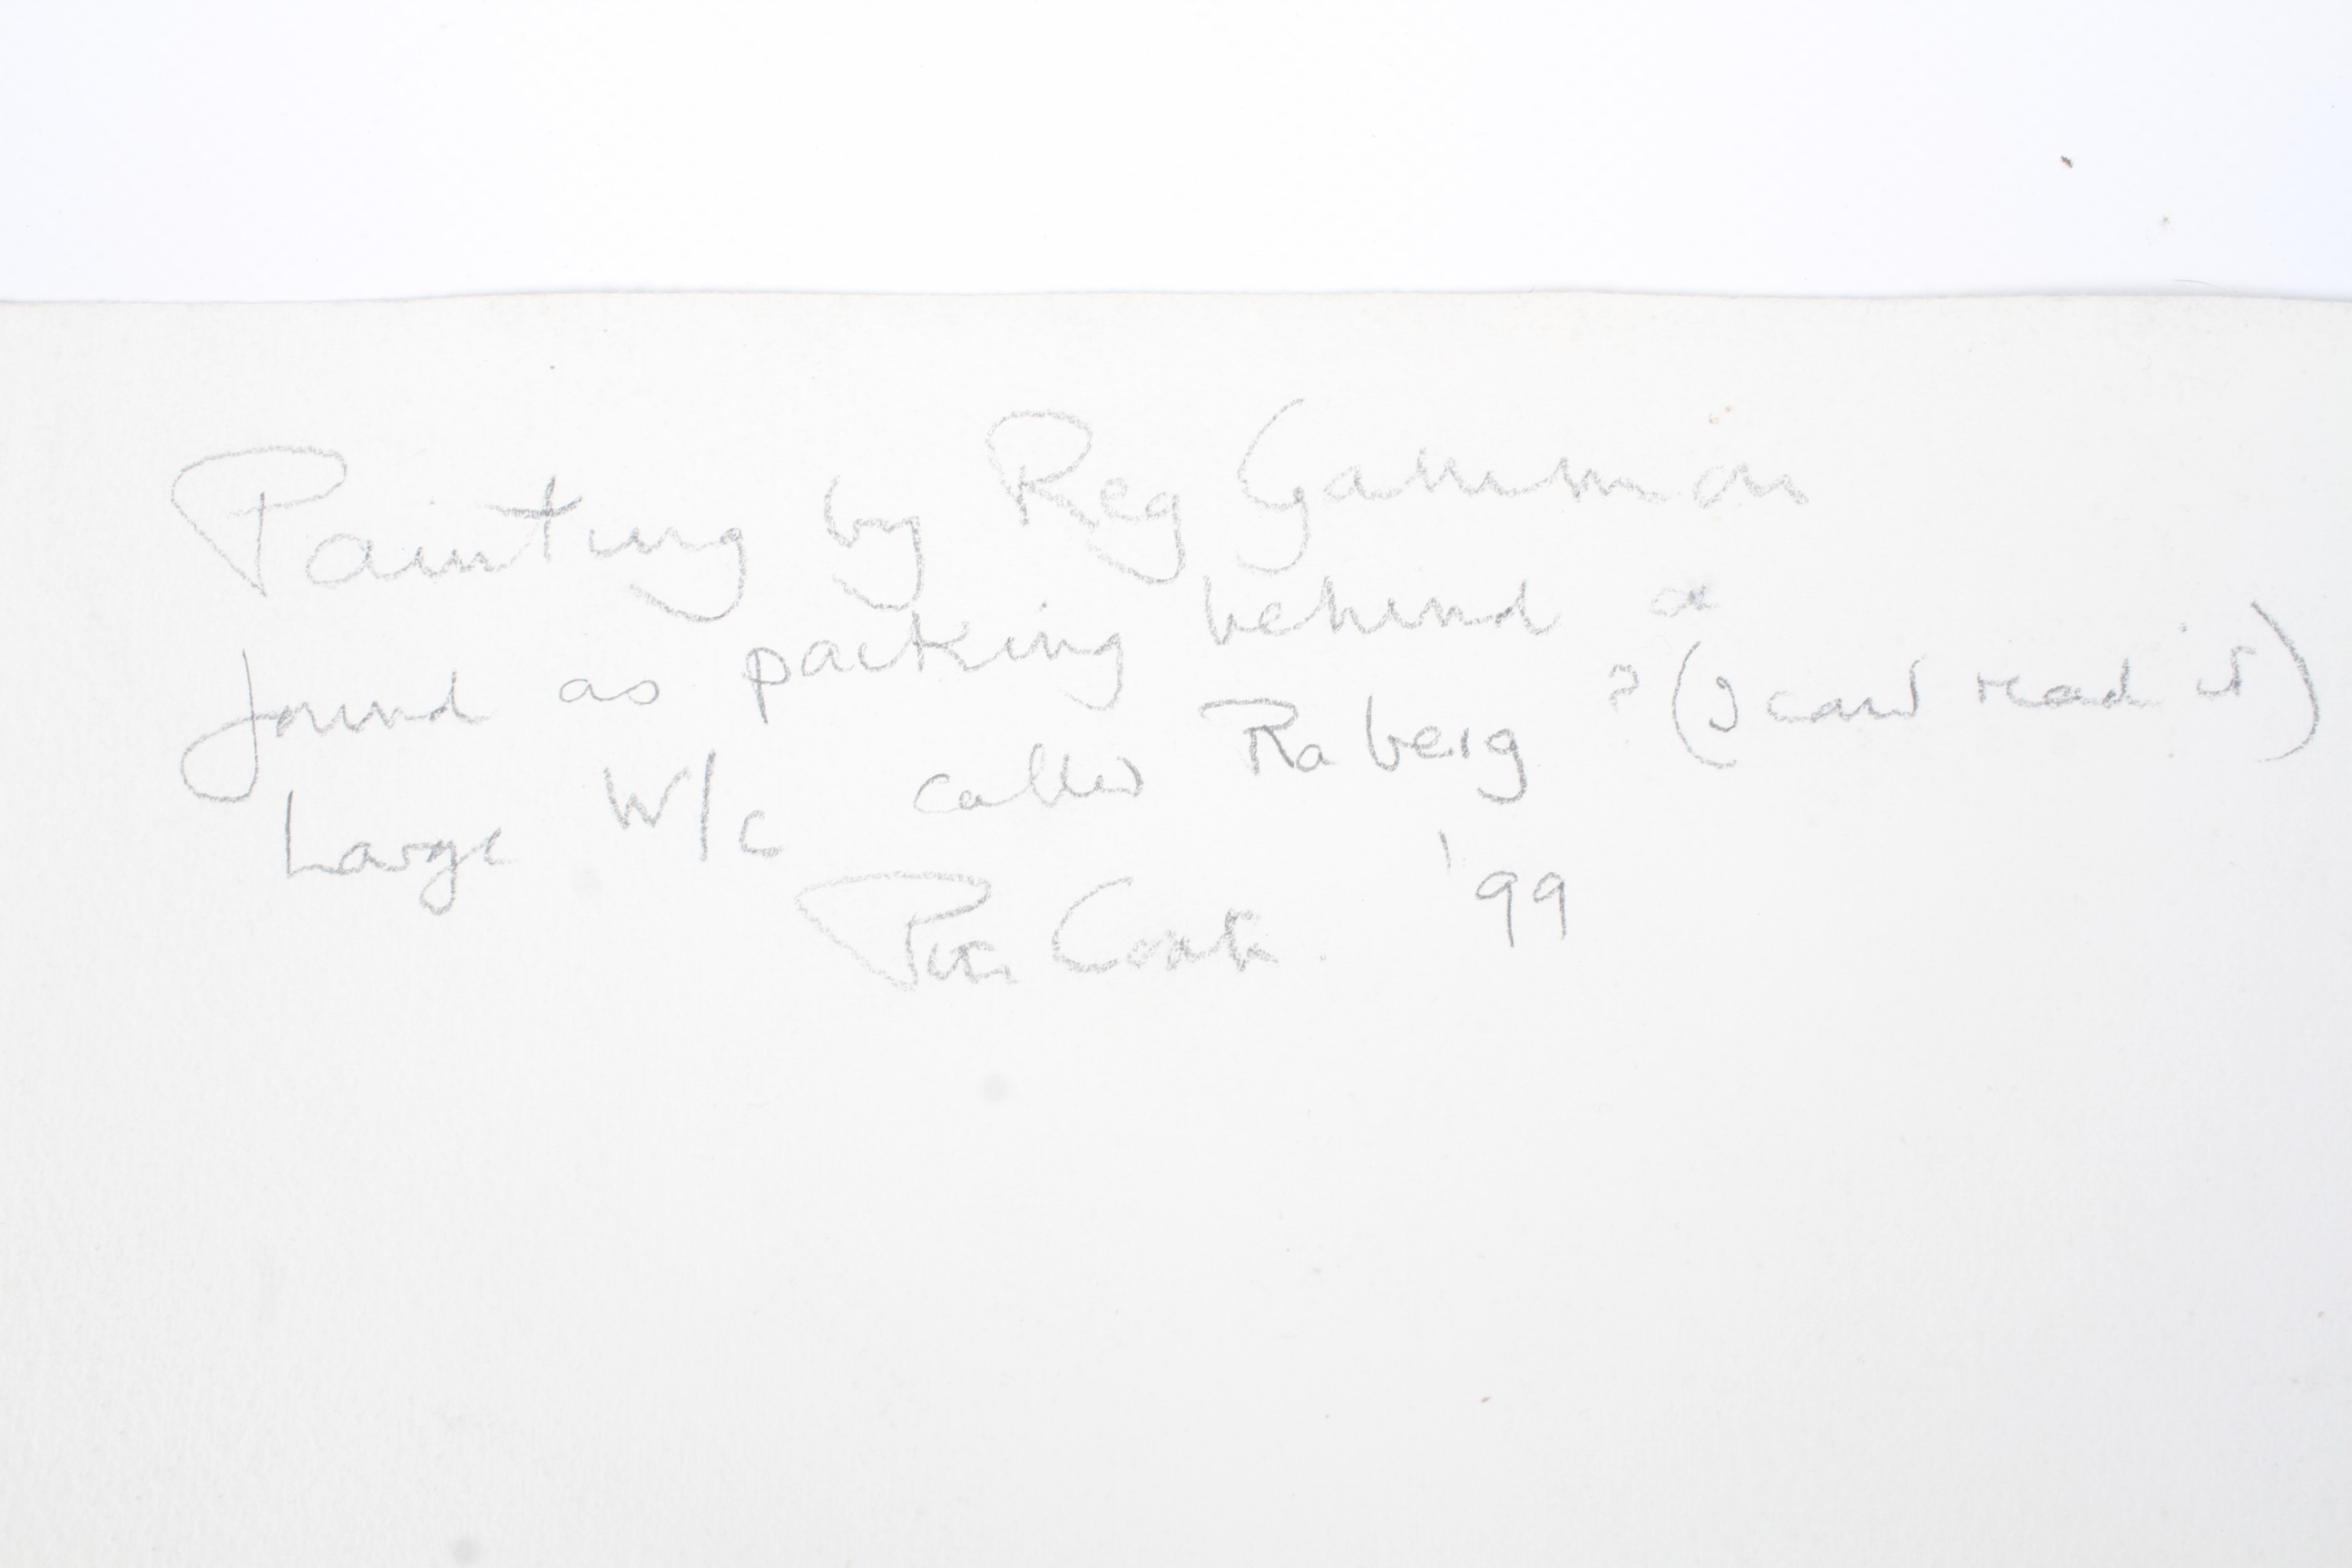 Painting by Reg Gammon
found as packing behind a
Large W/C called Raberg ? (I cant read it)
'99